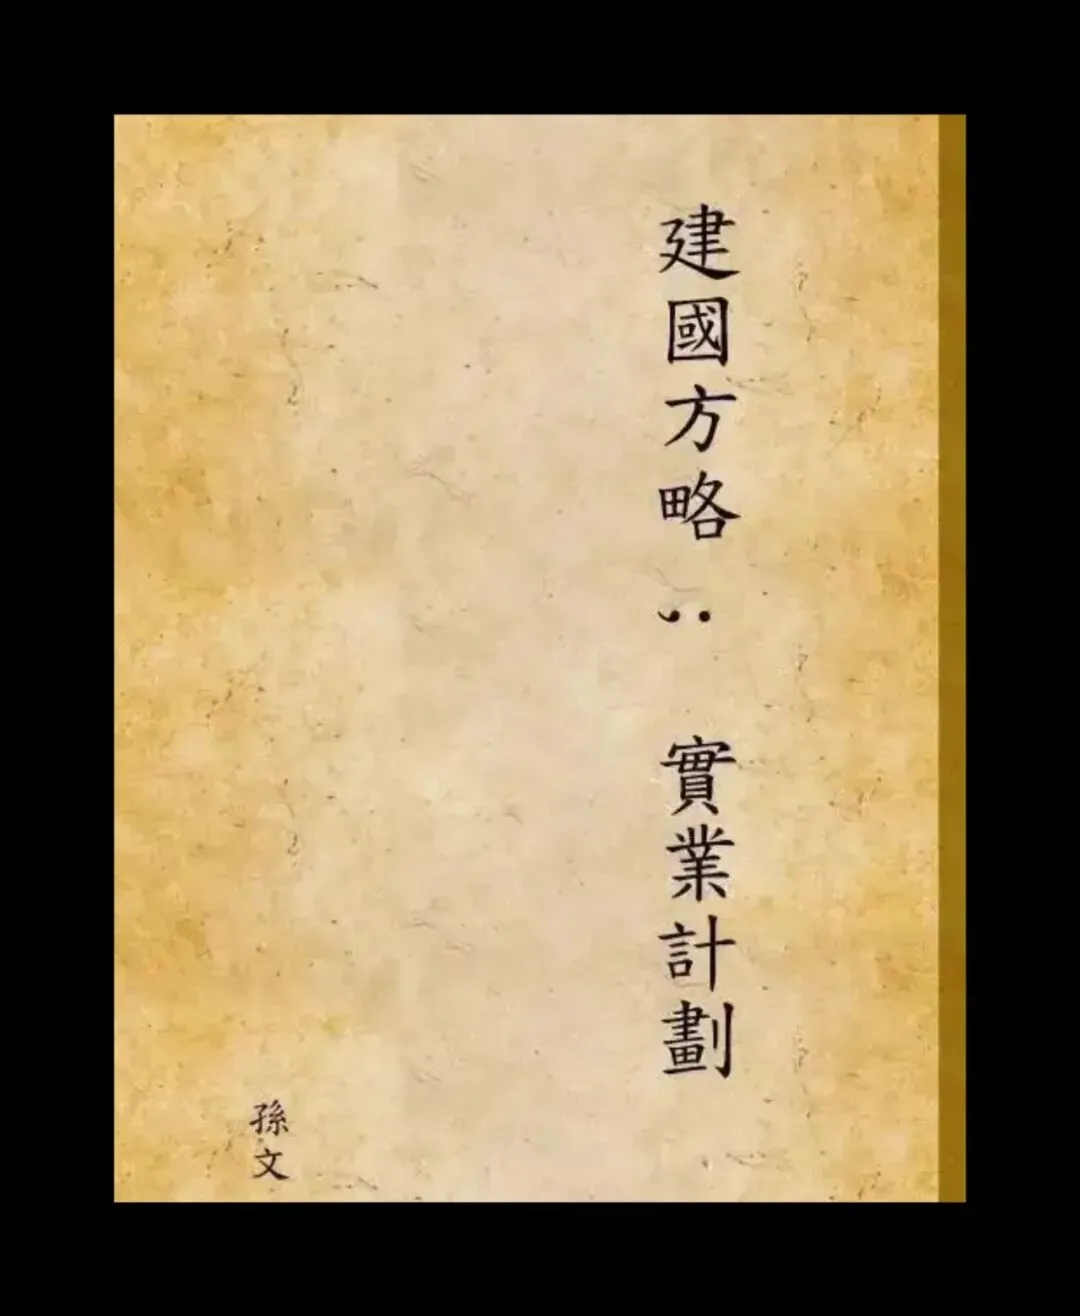 建國方略：實業計劃
孫文